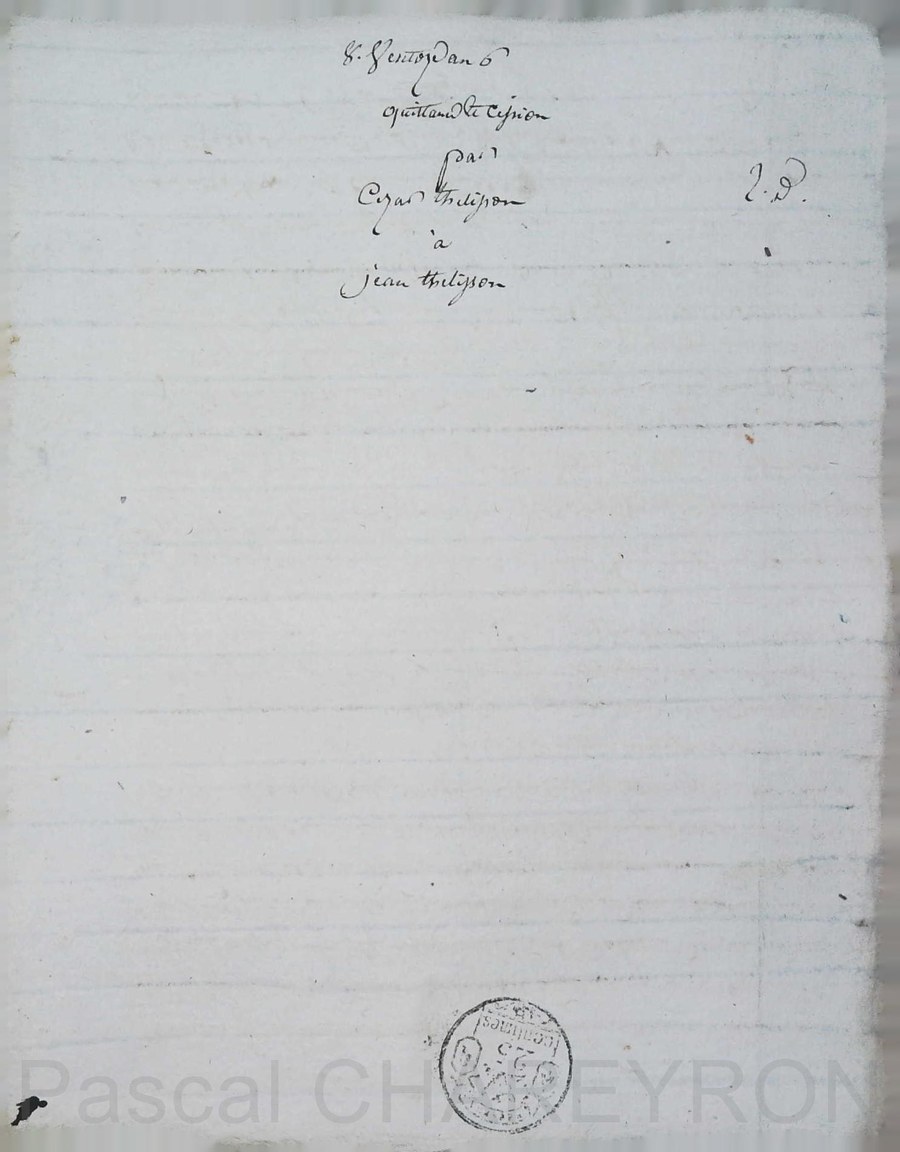 8. Ventoze an 6
quittance et cession
par
Cezar thelisson
à
jean thelisson
2. D.
centimes
25
Pascal CHAREYRON